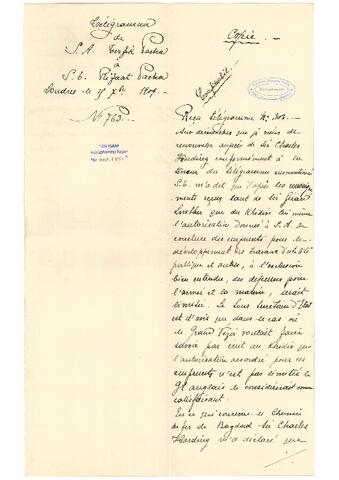 Télégramme
de
S. A. Tevfik Pacha
à
S. E. Rifaat Pacha
Londres le Xbre 1909.
No 763.
Copie.
Confidentiel.
Reçu télégramme No
Aux démarches que je viens de
renouveler auprès de Sir Charles
Harding conformément à la
teneur du télégramme susmentionné
S. E. m'a dit que d'après les rensei-
gnements reçus tant de Sir Gerard
Lowther que du Khédive lui même
l'autorisation donnée à S. A. de
conclure des emprunts pour le
développement des travaux d'utilité
publique et autres, à l'exclusion
bien entendu, des dépenses pour
l'armée et la marine, serait
limitée. Le Sous Secrétaire d'Etat
est d'avis que dans le cas où
le Grand Vizir voudrait faire
savoir par écrit au Khédive que
l'autorisation accordée pour ces
emprunts n'est pas limitée le
Gt anglais le considérerait comme
satisfaisant.
En ce qui concerne le Chemin
de fer de Bagdad Sir Charles
Harding m'a déclaré que